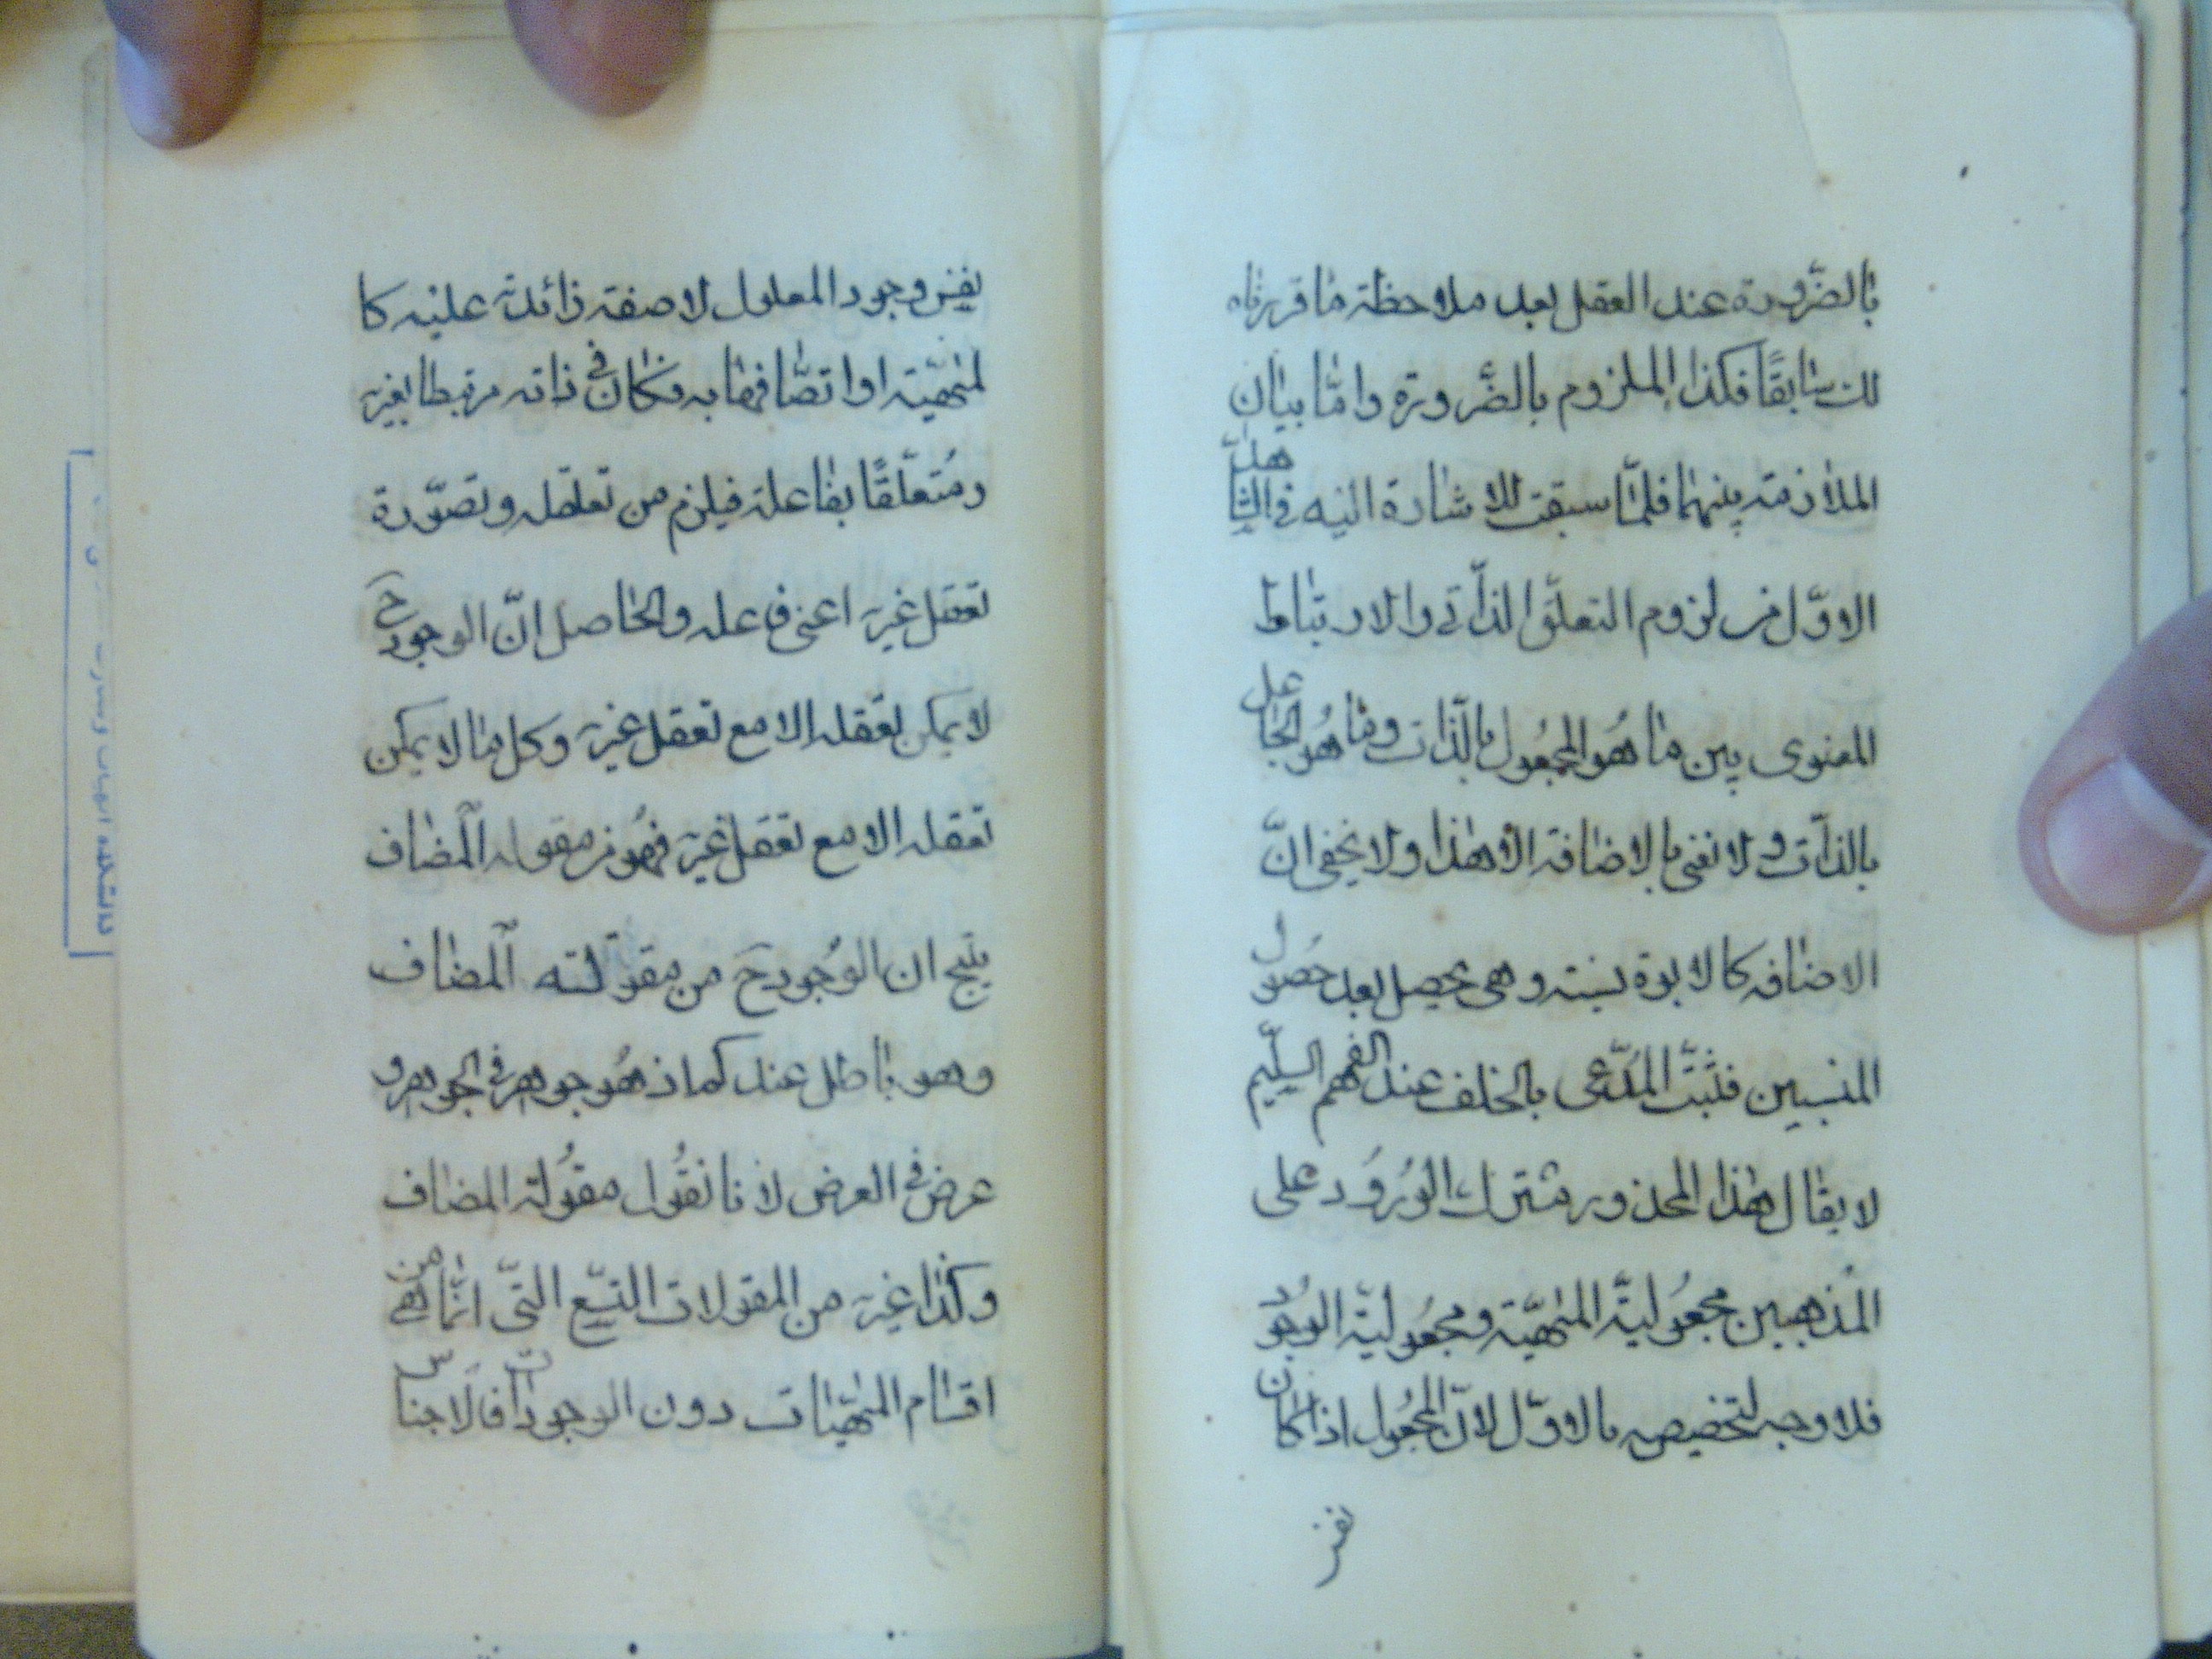 بالضّرورة عند العقل بعد ملاحظة ما قررناه
لك سابقًا فكذا الملزوم بالضّرورة وامّا بيان
الملازمة بينهما فلمّا سبقت الاشارة اليه في الشاهد
الاوّل من لزوم التعلّق الذّاتي والارتباط
المعنوى بين ما هُو المجعُول بالذّات وما هُو الجاعل
بالذّات ولا نعنى بالاضافة الا هذا ولا يخفى انّ
الاضافه كالابوة نسبة وهى يحصل بعد حصُول
المنسبين فثبتَ المدّعى بالخلف عند الفهم السليم
لا يقال هذا المحذور مشترك الوُرُود على
المذهبين مجعُوليّة المهيّة ومجعُوليّة الوجُود
فلا وجه لتخصيصه بالاوّل لانّ المجعُول اذا كان
نفس
نفس وجود المعلول لا صفة زائدة عليه كا
لمهيّة او اتصّافها به وكان في ذاته مرتبطا بغيره
ومُتعلّقًا بفاعله فيلزم من تعقله وتصوّره
تعقل غيره اعنى فاعله والحاصل انّ الوجود ح
لا يمكن تعقله الا مع تعقل غيره وكل ما لا يمكن
تعقله الا مع تعقل غيره فهُو من مقوله المضاف
ينتج ان الوجُود ح من مقولته المضاف
وهو باطل عندكم اذ هُو جوهر في الجوهر و
عرض في العرض لانا نقُول مقُولة المضاف
وكذا غيره من المقولات التسع التّى انّما هى من
اقسام المهيّات دون الوجودات فالاجناس